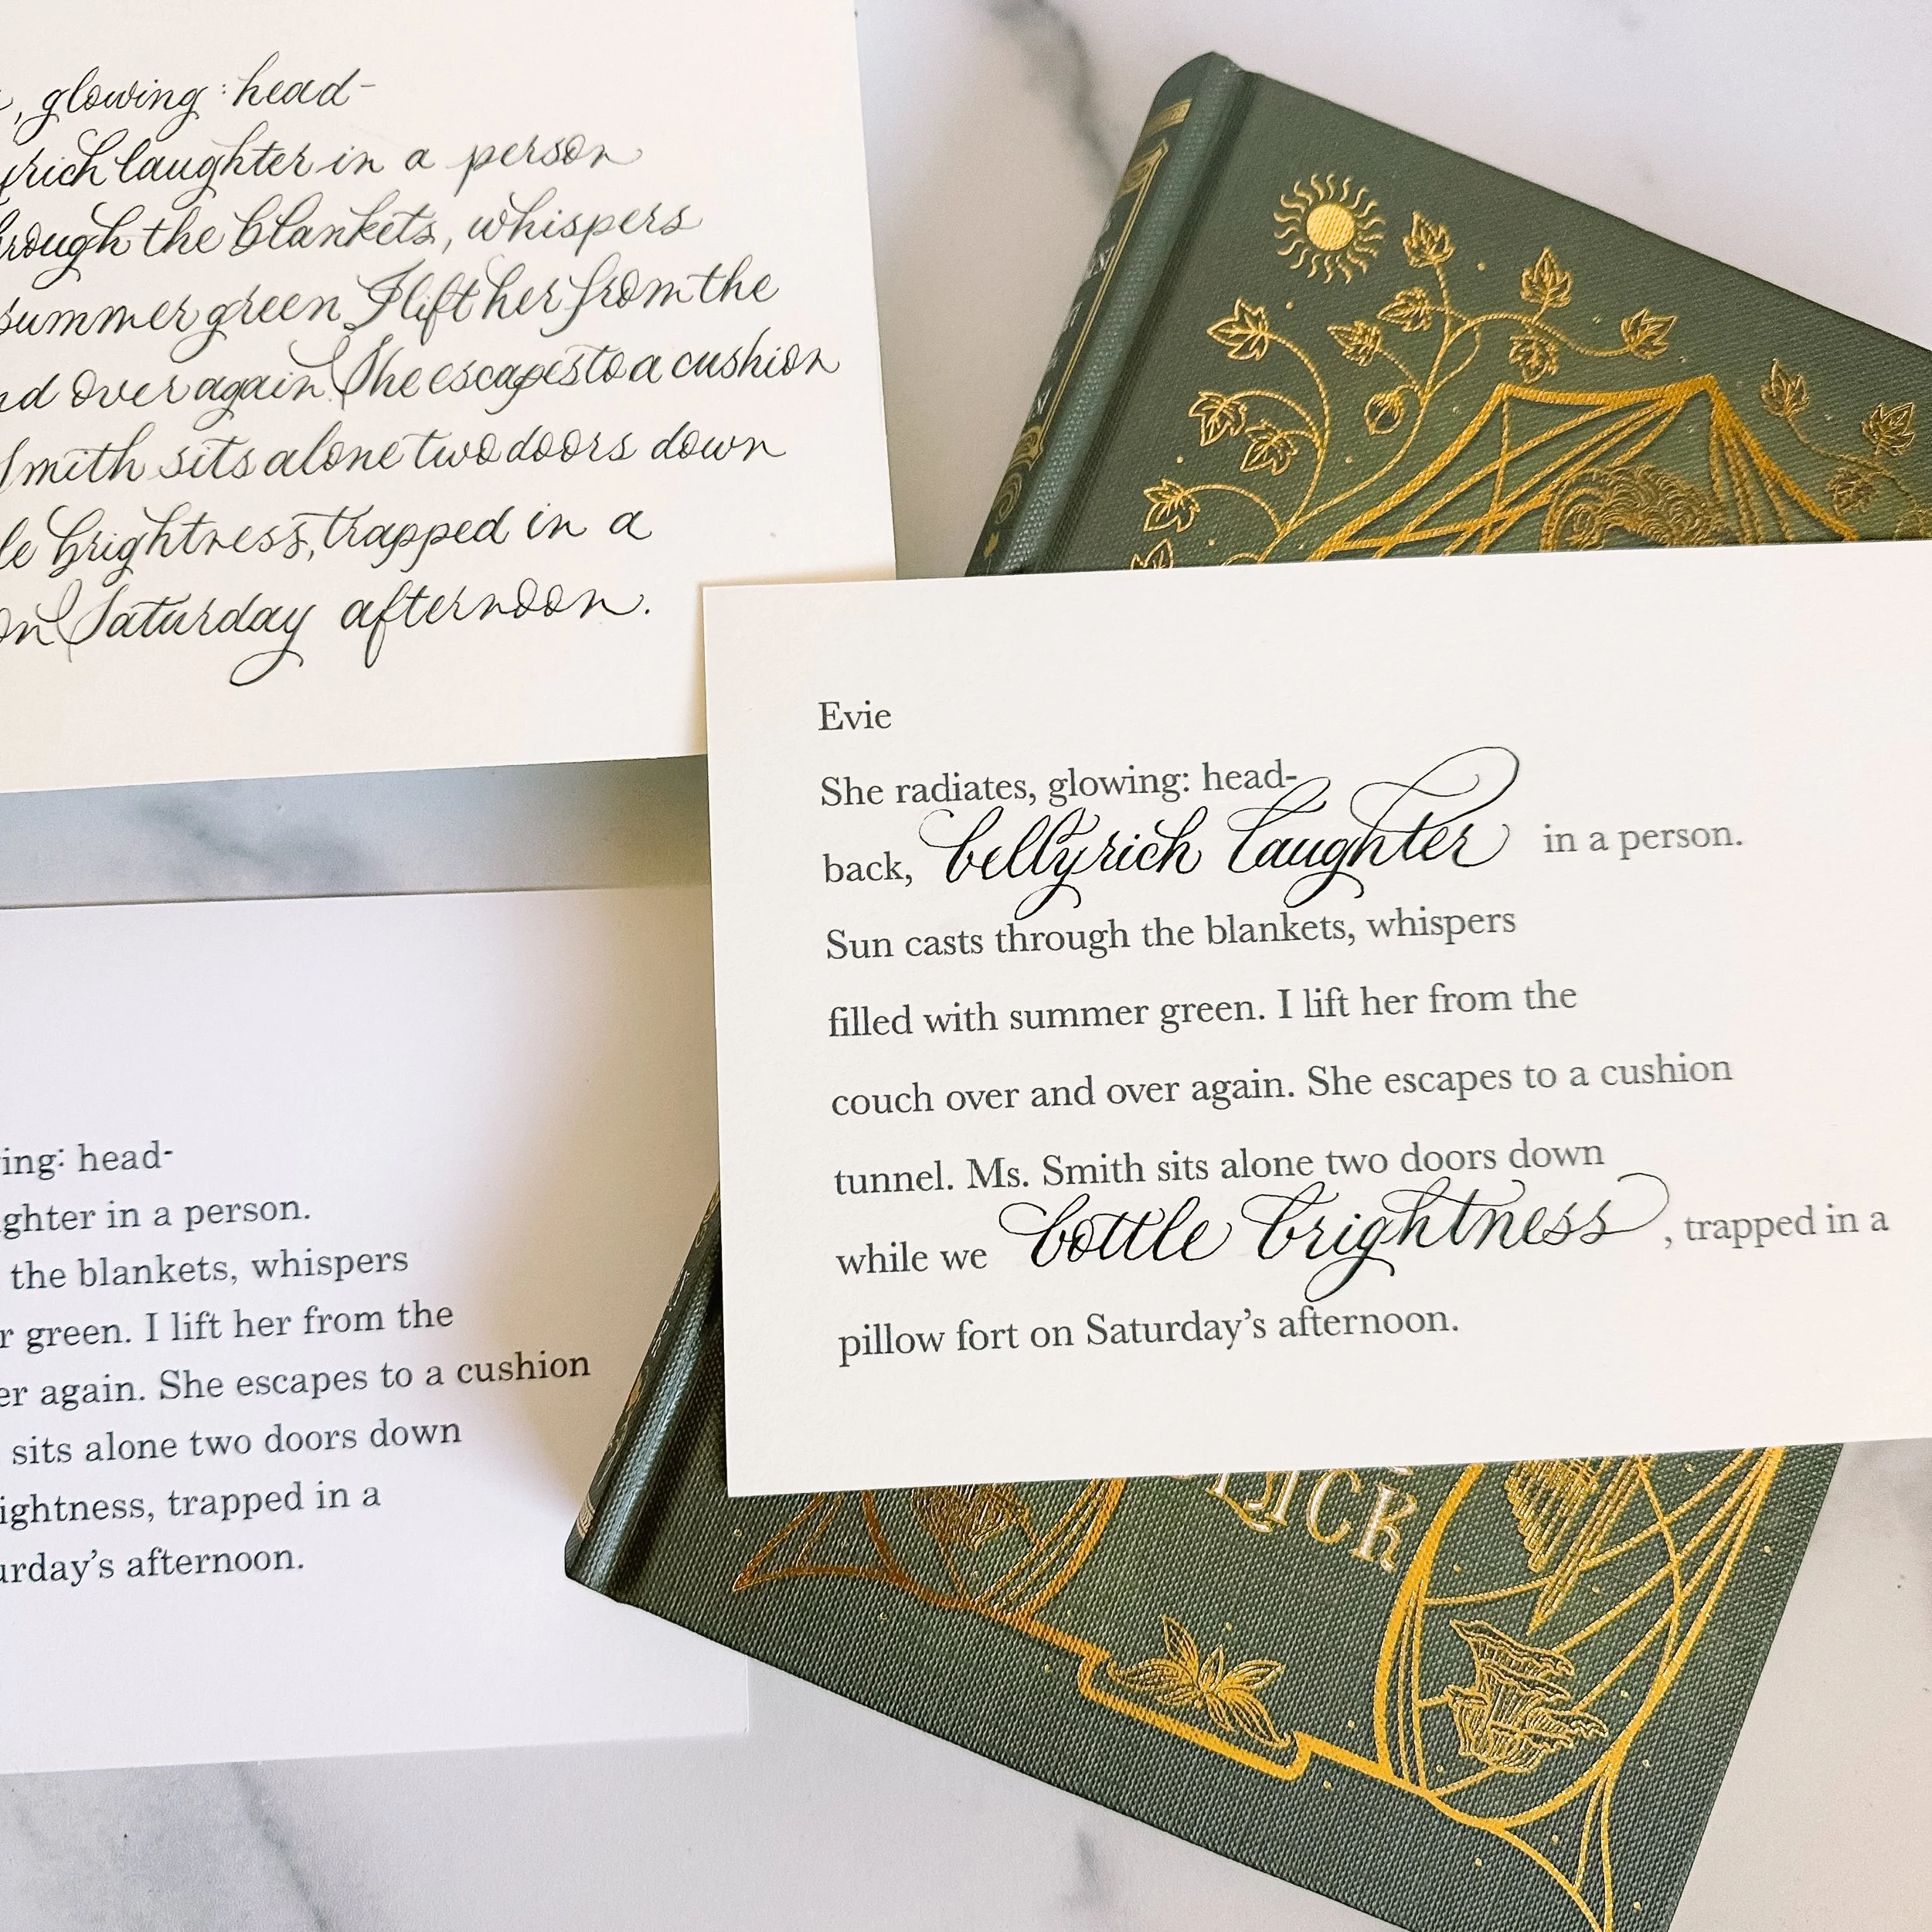 , glowing: head-
rich laughter in a person
hrough the blankets, whispers
summer green. I lift her from the
nd over again. She escapes to a cushion
Smith sits alone two doors down
le brightness, trapped in a
on Saturday afternoon.
Evie
She radiates, glowing: head-
back, bellyrich laughter in a person.
Sun casts through the blankets, whispers
filled with summer green. I lift her from the
couch over and over again. She escapes to a cushion
tunnel. Ms. Smith sits alone two doors down
while we bottle brightness, trapped in a
pillow fort on Saturday's afternoon.
ing: head-
ghter in a person.
the blankets, whispers
r green. I lift her from the
er again. She escapes to a cushion
sits alone two doors down
ightness, trapped in a
urday's afternoon.